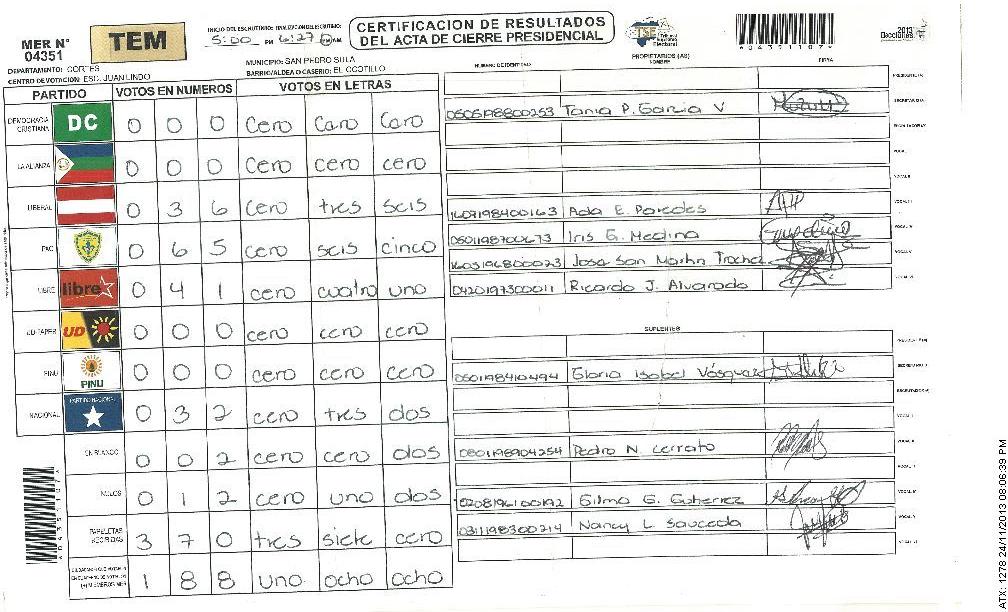 MER N° 04351
TEM
INICIO DEL ESCRUTINIO: FINALIZACION DEL ESCRUTINIO:
5:00 PM 6:27
CERTIFICACION DE RESULTADOS
DEL ACTA DE CIERRE PRESIDENCIAL
TSE Tribunal Supremo Electoral
A04351107
Elecciones 2013
DEPARTAMENTO: CORTES
MUNICIPIO: SAN PEDRO SULA
CENTRO DE VOTACION: ESC. JUAN LINDO
BARRIO/ALDEA O CASERIO: EL OCOTILLO
PARTIDO VOTOS EN NUMEROS VOTOS EN LETRAS
DEMOCRACIA CRISTIANA DC 0 0 0 Cero Caro Caro
LA ALIANZA 0 0 0 Cero cero cero
LIBERAL 0 3 6 Cero tres seis
PAC 0 6 5 cero seis cinco
LIBRE libre 0 4 1 cero cuatro uno
UD-FAPER UD 0 0 0 cero cero cero
PINU PINU 0 0 0 cero cero cero
NACIONAL PARTIDO NACIONAL 0 3 2 cero tres dos
EN BLANCO 0 0 2 cero cero dos
NULOS 0 1 2 cero uno dos
PAPELETAS RECIBIDAS 3 7 0 tres siete cero
1 8 8 uno ocho ocho
NUMERO DE IDENTIDAD PROPIETARIOS (AS) NOMBRE FIRMA
PRESIDENTE (A)
0505198800253 Tania P. Garcia V SECRETARIO(A)
ESCRUTADOR(A)
VOCAL I
VOCAL II
1607198400163 Ada E. Paredes VOCAL III
0501198700673 Iris G. Medina VOCAL IV
1603196800023 Jose San Martin Trochez VOCAL V
0420197300011 Ricardo J. Alvarado VOCAL VI
SUPLENTES
PRESIDENTE (A)
0501198410494 Gloria Isabel Vásquez SECRETARIO(A)
ESCRUTADOR(A)
VOCAL I
0801198904254 Pedro N. Cerrato VOCAL II
VOCAL III
Gilma G. Gutierrez VOCAL IV
0311198300214 Nancy L Sauceda VOCAL V
VOCAL VI
A04351107
ATX: 1278 24/11/2013 08:06:39 PM